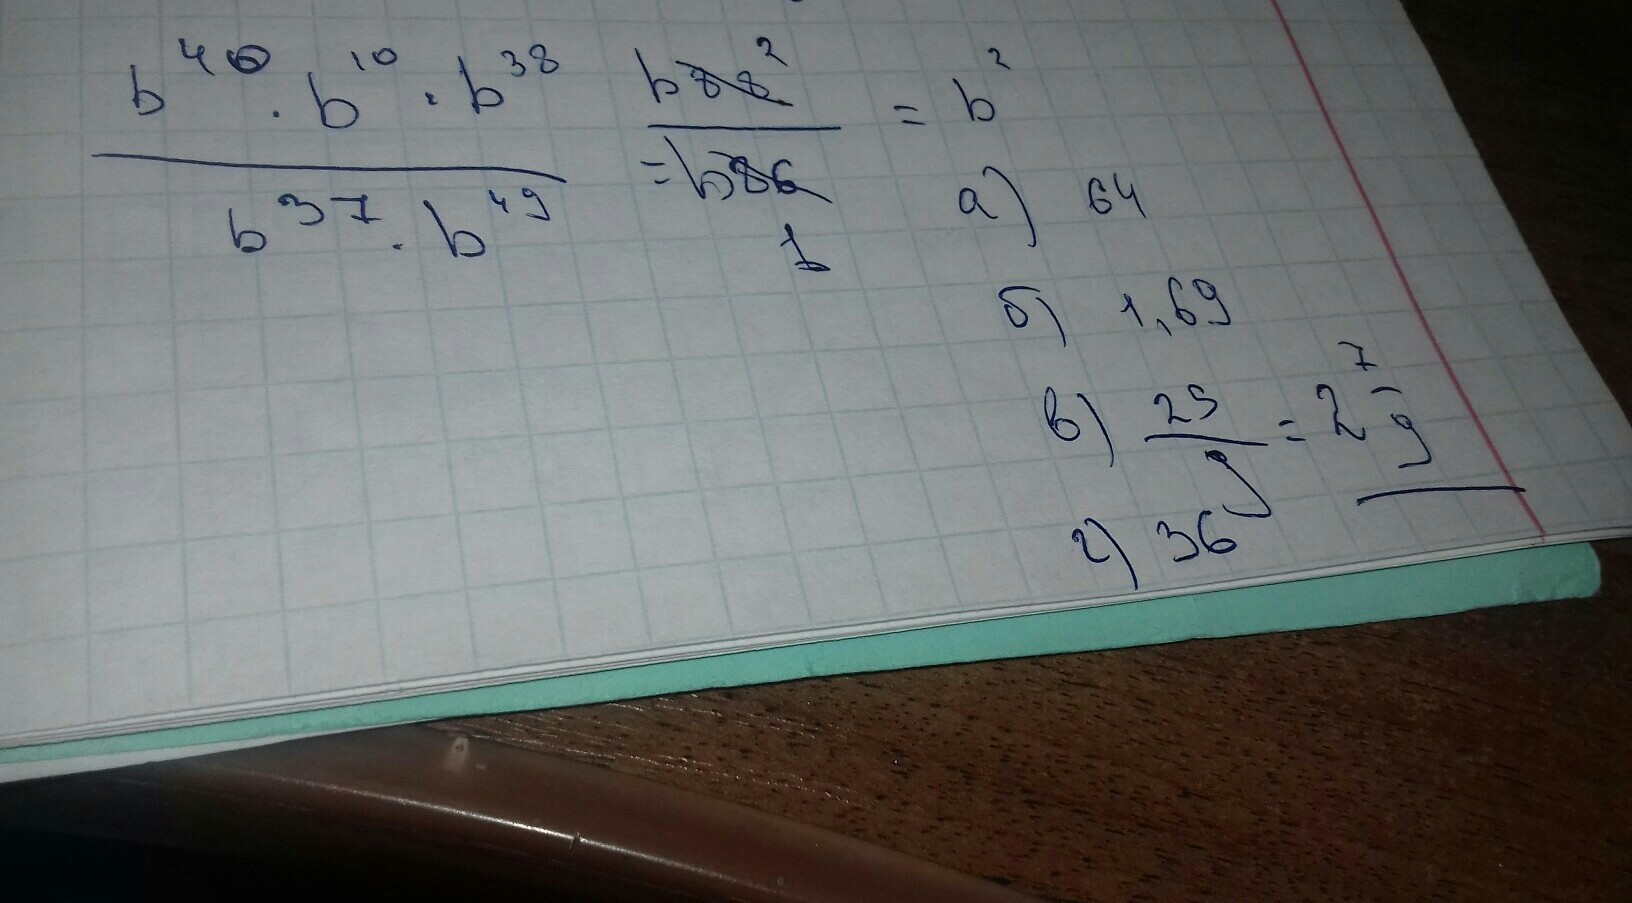 b⁴⁰ · b¹⁰ · b³⁸ / b³⁷ · b⁴⁹ = b⁸⁸ ² / b⁸⁶ 1 = b²
а) 64
б) 1,69
в) 25/9 = 2 7/9
г) 36